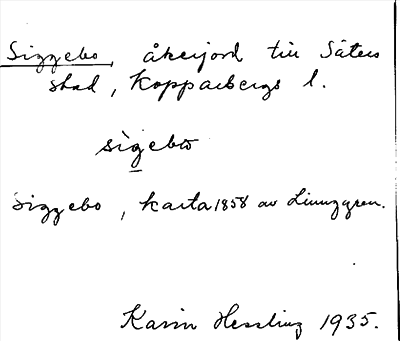 Siggebo, åkerjord till Säters
stad, Kopparbergs l.
sìgebω
Siggebo, karta 1858 av Ljunggren.
Karin Hessling 1935.